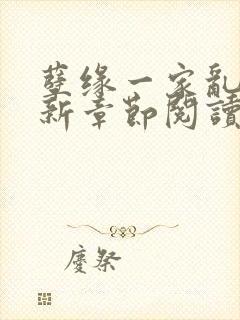 孽缘一家亂
新章節閱讀
慶祭